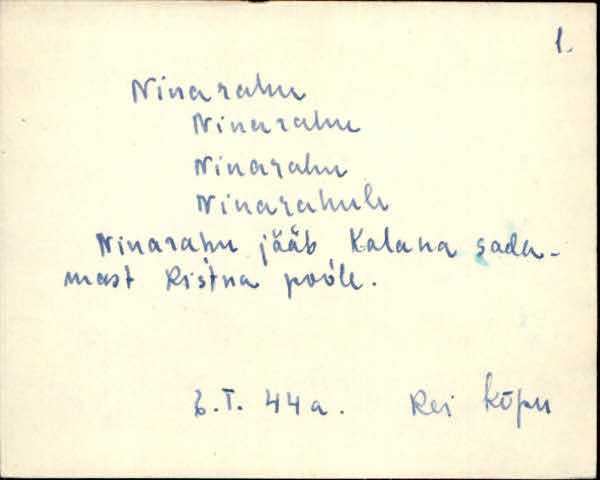 1.
Ninarahu
Ninarahu
Ninarahu
Ninarahule
Ninarahu jääb Kalana sada-
mast Ristna poole.
E.T. 44 a. Rei Kõpu